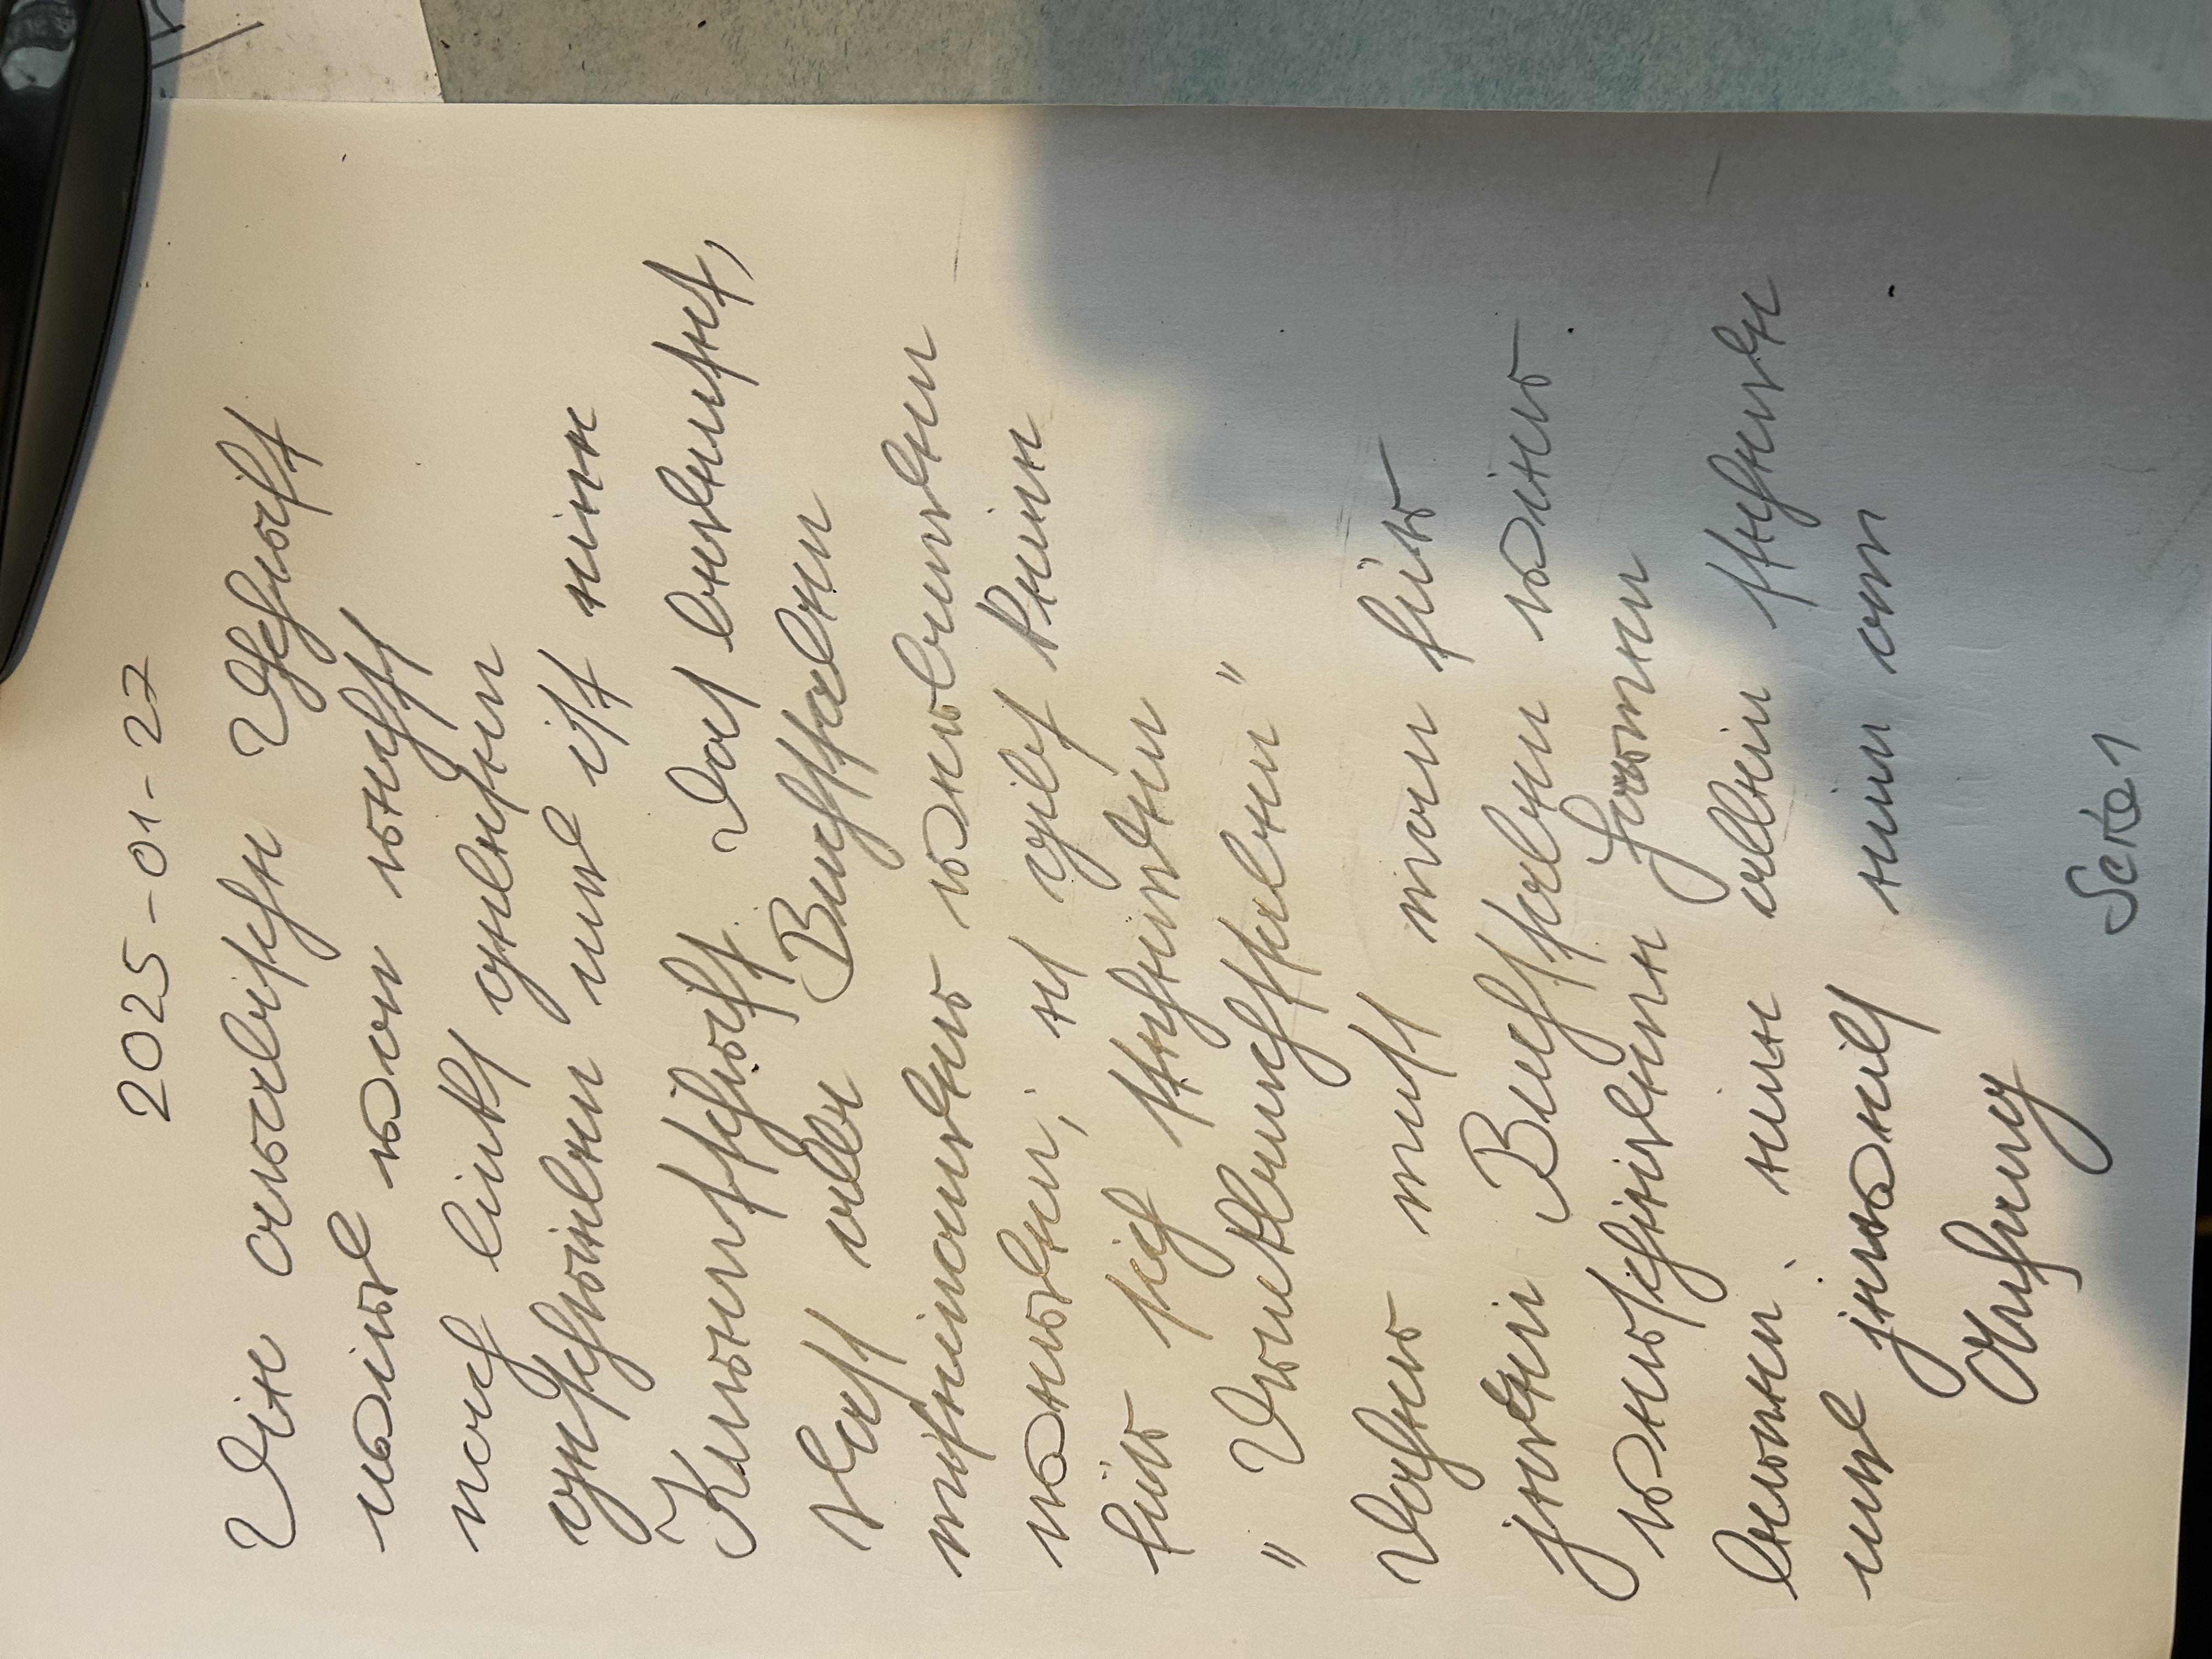 2025-01-27
Die arabische Schrift
wird von rechts
nach links gelesen
geschrieben und ist eine
Kurentschrift. Das bedeutet,
dass alle Buchstaben
miteinander verbunden
werden; es gibt keine
für sich stehenden
„Druckbuchstaben"
Daher muss man für
jeden Buchstaben vier
verschiedene Formen
lernen. eine allein stehende
und jeweils eine am
Anfang
Seite 1